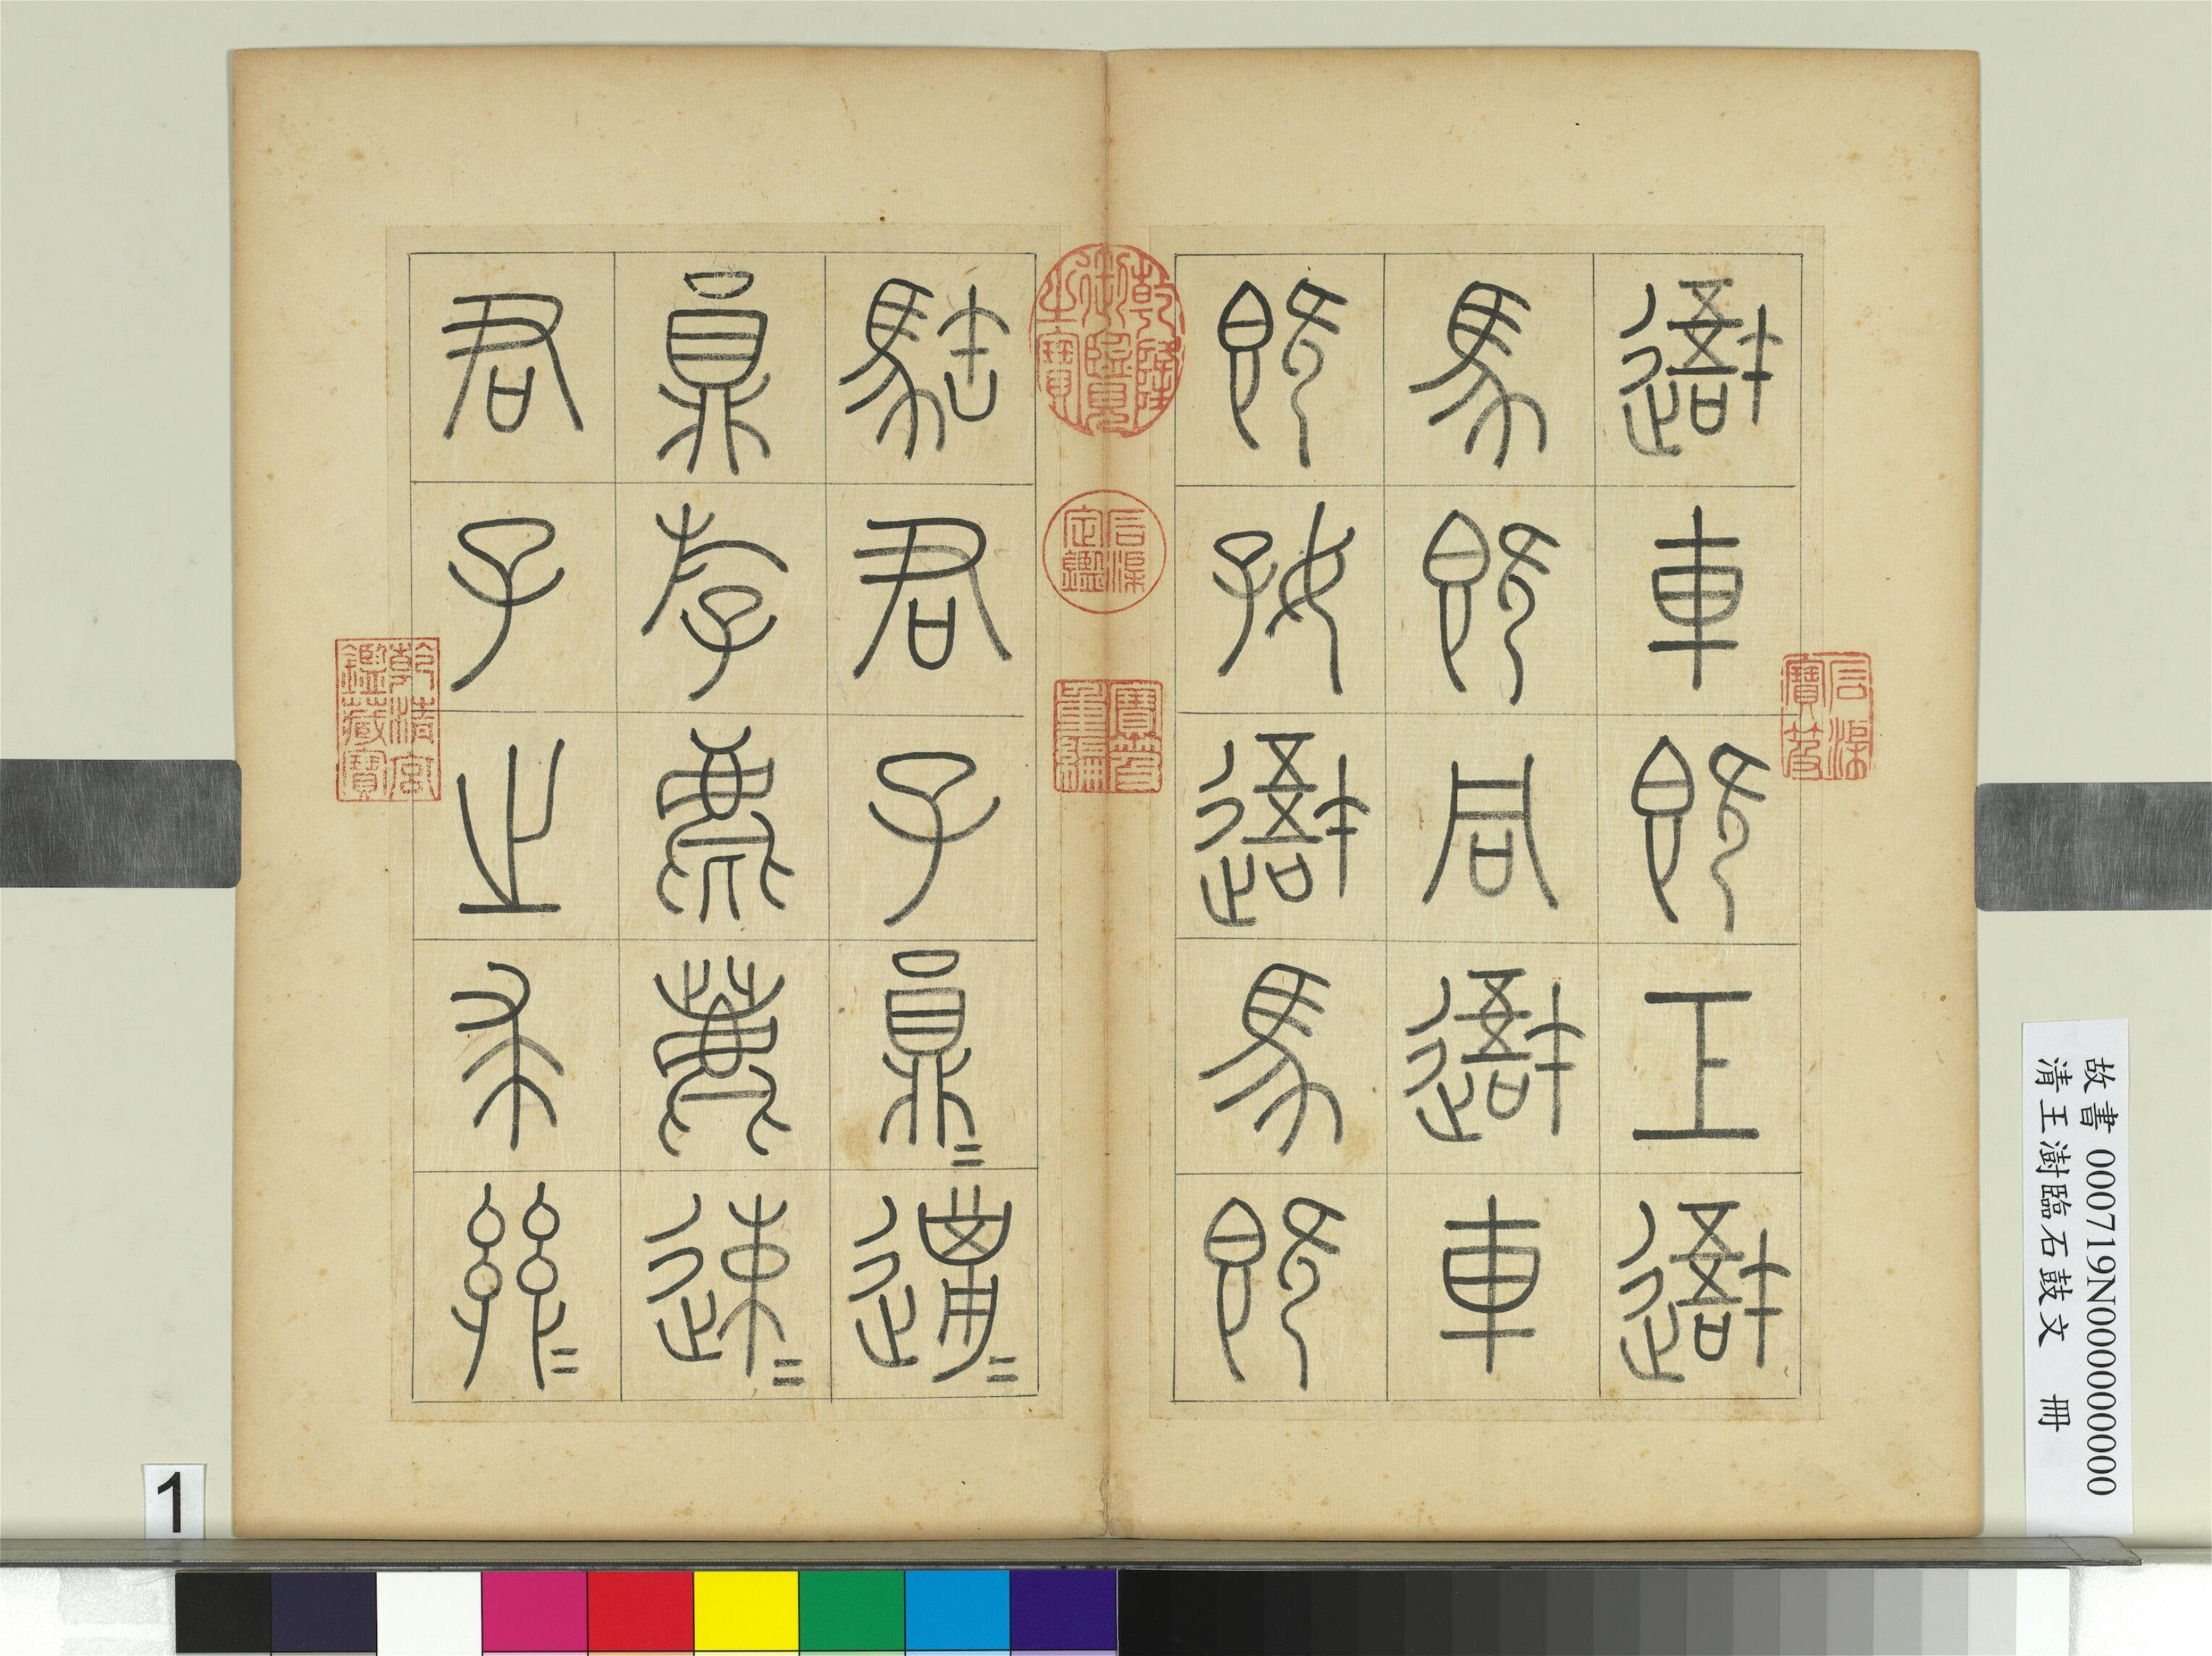 避車既工避
馬既同避車
既好避馬既
君子員=邋=
員斿麀鹿速=
君子之求
乾隆御覽之寶
石渠定鑑
寶笈重編
石渠寶笈
乾清宮鑑藏寶
故書 000719N000000000
清王澍臨石鼓文 冊
1